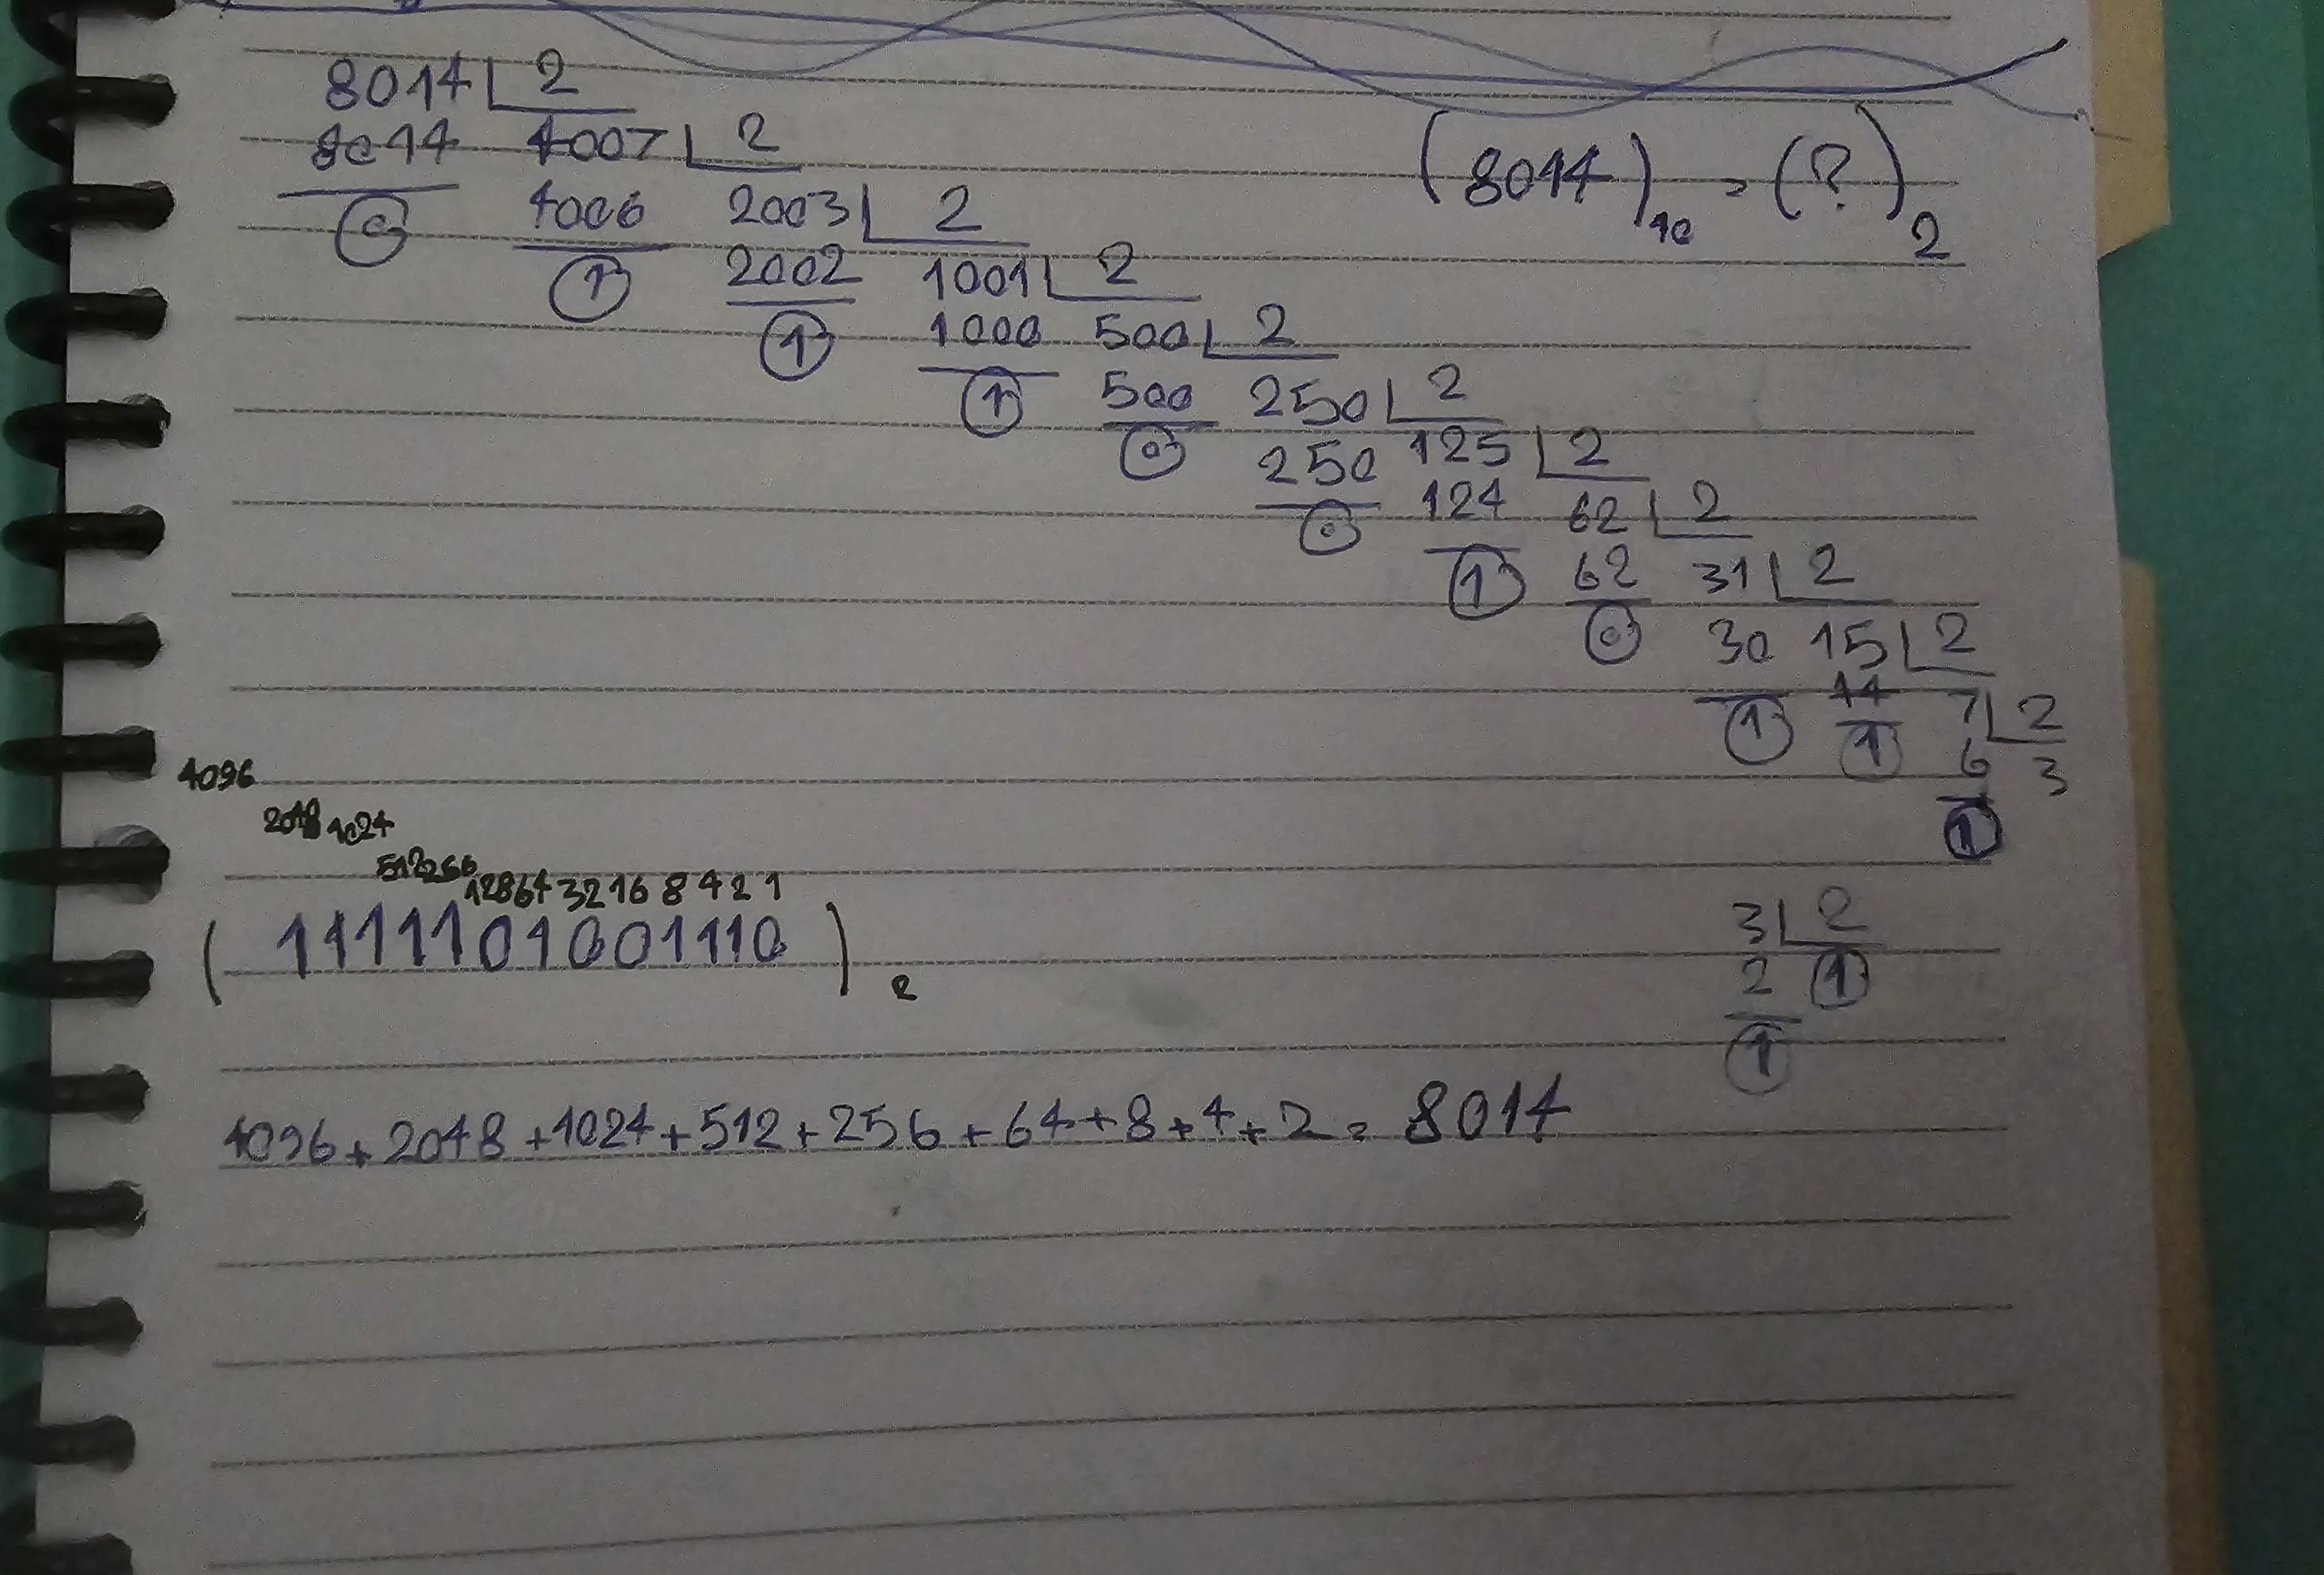 8014 2
8014 4007 2
(8014)10 = (?)2
0 4006 2003 2
1 2002 1001 2
1 1000 500 2
1 500 250 2
0 250 125 2
0 124 62 2
1 62 31 2
0 30 15 2
1 14 7 2
1 6 3
1
4096
2048 1024
512 256
128 64 32 16 8 4 2 1
(1111101001110)2
3 2
2 1
1
4096+2048+1024+512+256+64+8+4+2=8014